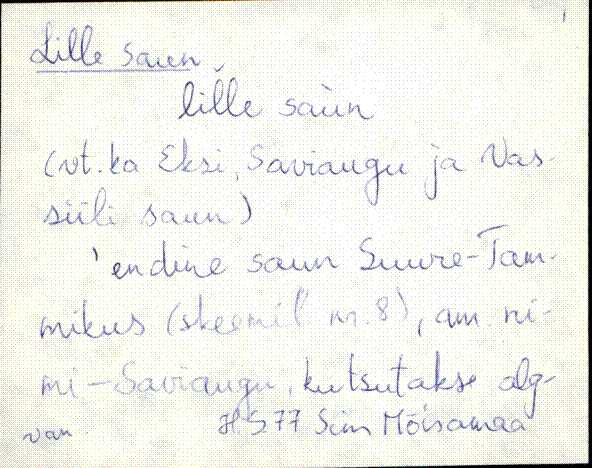 Lille saun
lĭlle saùn
(vt. ka Eksi, Saviaugu ja Vas-
siili saun)
'endine saun Suure-Tam-
mikus (skeemil nr. 8), am. ni-
mi - Saviaugu, kutsutakse alg-
van H 577 Siim Mõisamaa